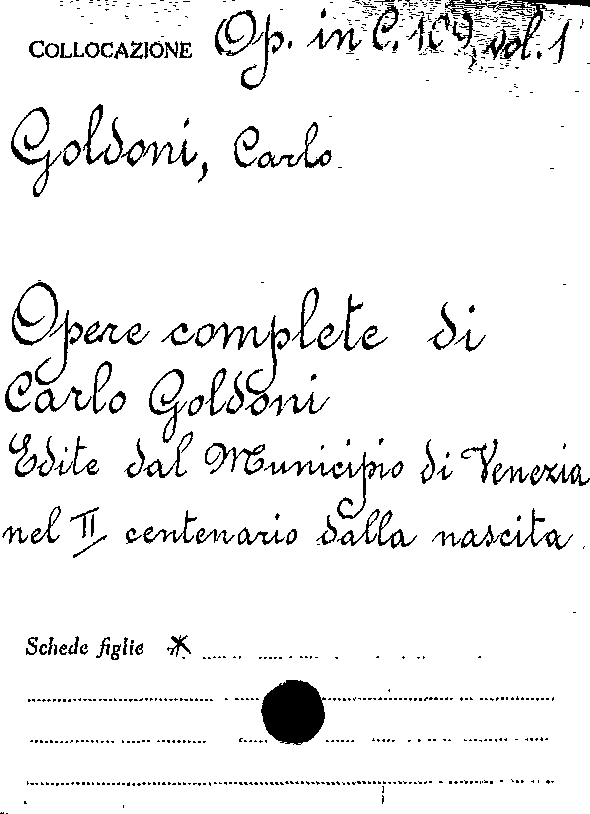 COLLOCAZIONE Op. in C. 109, vol. 1
Goldoni, Carlo
Opere complete di
Carlo Goldoni
Edite dal Municipio di Venezia
nel II centenario dalla nascita.
Schede figlie *